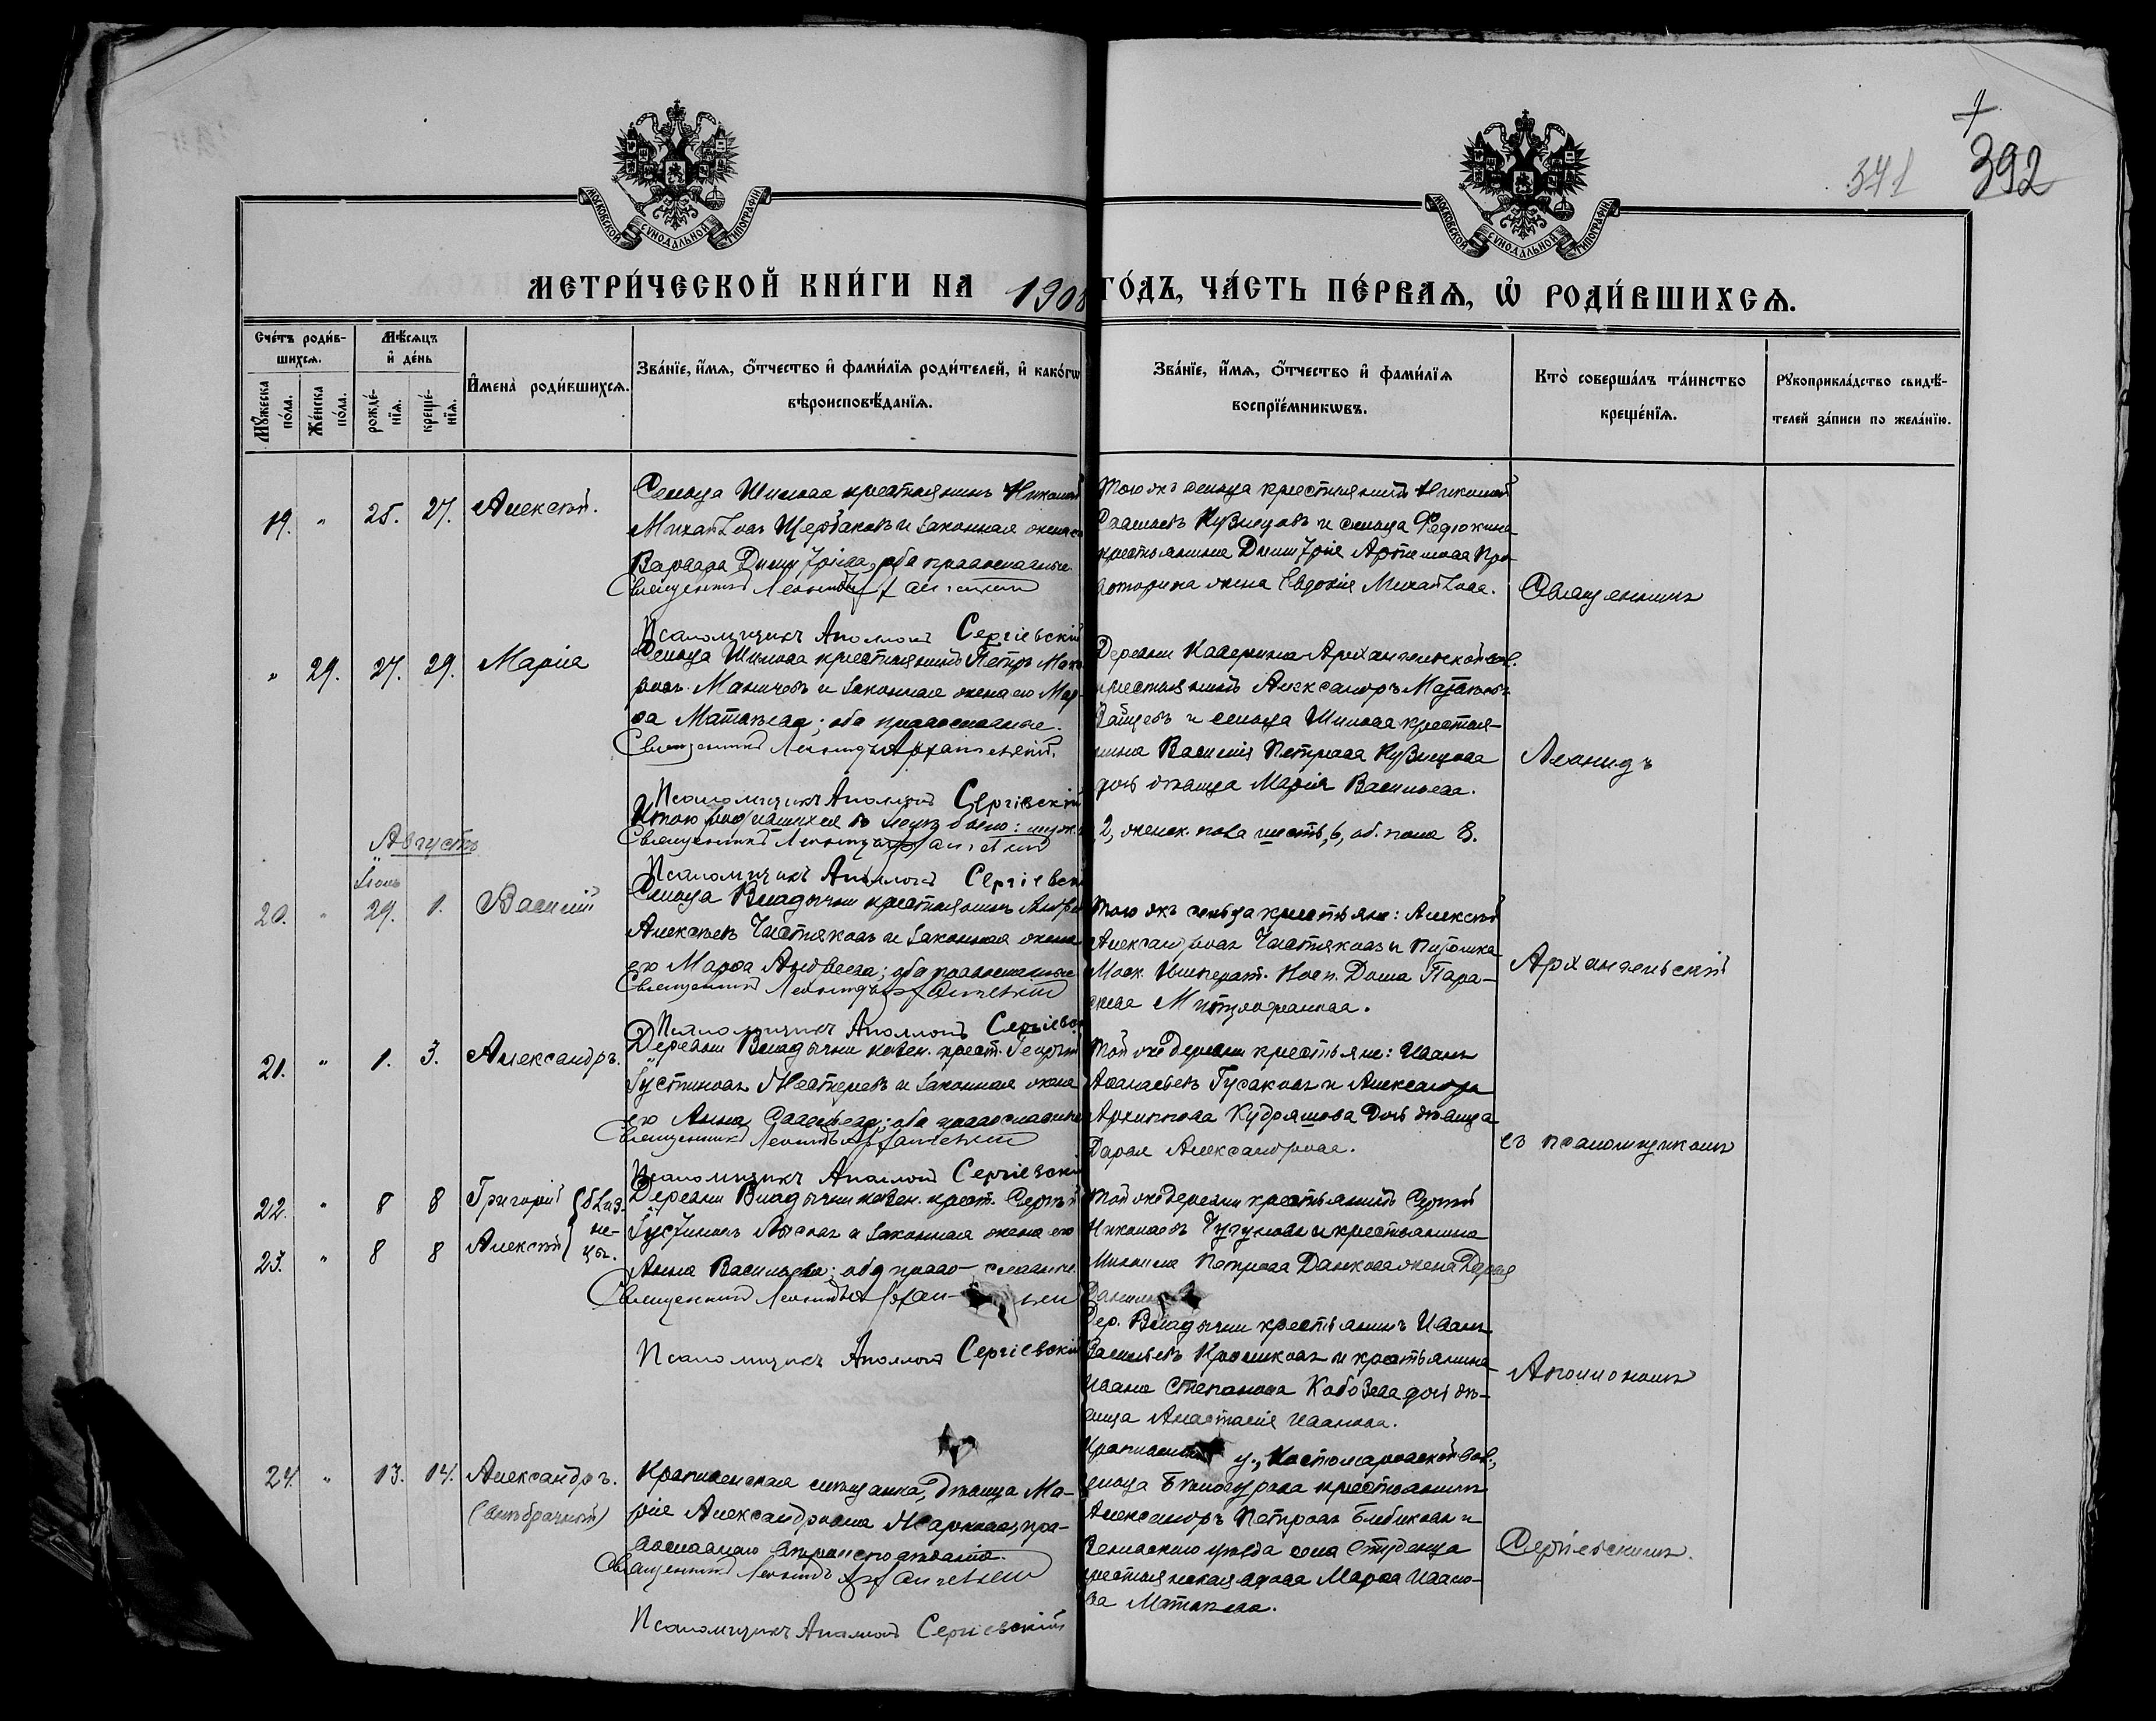 341
392
МОСКОВСКОЙ СѴНОДАЛЬНОЙ ТИПОГРАФІИ
МОСКОВСКОЙ СѴНОДАЛЬНОЙ ТИПОГРАФІИ
МЕТРИ́ЧЕСКОЙ КНИ́ГИ НА 1908 ГО́ДЪ, ЧА́СТЬ ПЕ́РВАѦ, Ѽ РОДИ́ВШИХСѦ.
Сче́тъ роди́в-
шихсѧ.
Мꙋ́жеска по́ла.
Же́нска по́ла.
Мѣ́сѧцъ
и҆ де́нь
рожде́-
нїѧ.
креще́-
нїѧ.
И҆мена̀ роди́вшихсѧ.
Зва́нїе, и҆́мѧ, ѻ҆́тчество и҆ фами́лїѧ роди́телей, и҆ како́гѡ
вѣроисповѣ́данїѧ.
Зва́нїе, и҆́мѧ, ѻ҆́тчество и҆ фами́лїѧ
воспрїе́мникѡвъ.
Кто̀ соверша́лъ та́инство
креще́нїѧ.
Рꙋкоприкла́дство свидѣ́-
телей за́писи по жела́нїю.
19. " 25. 27. Алексѣй.
Сельца Шилова крестьянинъ Николай
Михайловъ Щербаковъ и законная жена его
Варвара Димитріева, оба православные.
Священникъ Леонидъ Архангельскій
Псаломщикъ Аполлонъ Сергіевскій
Того же сельца крестьянинъ Николай
Савельевъ Кузнецовъ и сельца Федюкина
крестьянина Димитрія Артемова
жена Евдокія Михайлова.
Священникъ
" 29. 27. 29. Марія
Сельца Шилова крестьянинъ Петръ
Маничевъ и законная жена его Мар-
ѳа Матвѣева; оба православные.
Священникъ Леонидъ Архангельскій.
Псаломщикъ Аполлонъ Сергіевскій
Деревни Каверина Архангельской вол.
крестьянинъ Александръ Матвѣевъ
Зайцевъ и сельца Шилова крестья-
нина Василія Петрова Кузнецова
дочь дѣвица Марія Васильева.
Леонидъ
Итого родившихся въ Іюлѣ было: муж.
2, женск. пола шесть, 6, об. пола 8.
Священникъ Леонидъ Архангельскій
Псаломщикъ Аполлонъ Сергіевскій
Августъ
Іюль
20. " 29. 1. Василій
Сельца Владычни крестьянинъ Андрей
Алексѣевъ Чистяковъ и законная жена
его Марѳа Андреева; оба православные
Священникъ Леонидъ Архангельскій
Псаломщикъ Аполлонъ Сергіевскій
Того же сельца крестьяне: Алексѣй
Александровъ Чистяковъ и питомка
Моск. Императ. Восп. Дома Пара-
скева Митрофанова.
Архангельскій
21. " 1. 3. Александръ.
Деревни Владычни крест. Георгій
Густиновъ Нестеревъ и законная жена
его Анна Савельева; оба православные
Священникъ Леонидъ Архангельскій
Псаломщикъ Аполлонъ Сергіевскій
Той же деревни крестьяне: Иванъ
Аѳанасьевъ Гусаковъ и Александра
Архиппова Кудряшова дочь дѣвица
Дарья Александрова.
съ псаломщикомъ
22. " 8 8 Григорій
23. " 8 8 Алексѣй
близ-
не-
цы.
Деревни Владычни крест. Сергѣй
Густиновъ Лысовъ и законная жена его
Анна Васильева; оба право- славные.
Священникъ Леонидъ
Псаломщикъ Аполлонъ Сергіевскій
Той же деревни крестьянинъ Сергѣй
Николаевъ Чугуновъ и крестьянина
Михаила Петрова Данкова жена Дарья
Дер. Владычни крестьянинъ Иванъ
Васильевъ Кроликовъ и крестьянина
Ивана Степанова Кабозева дочь дѣ-
вица Анастасія Иванова.
Аполлономъ
24. " 13. 14. Александръ.
(внѣбрачный)
Крапивенская мѣщанка, дѣвица Ма-
рія Александровна Жаркова, пра-
вославнаго вѣроисповѣданія.
Священникъ Леонидъ Архангельскій
Псаломщикъ Аполлонъ Сергіевскій
у., Костомаровской вол.,
сельца Бѣлогурова крестьянинъ
Александръ Петровъ Бибиковъ и
уѣзда села Студенца
крестьянская вдова Марѳа Ивано-
ва Матвѣева.
Сергіевскимъ.